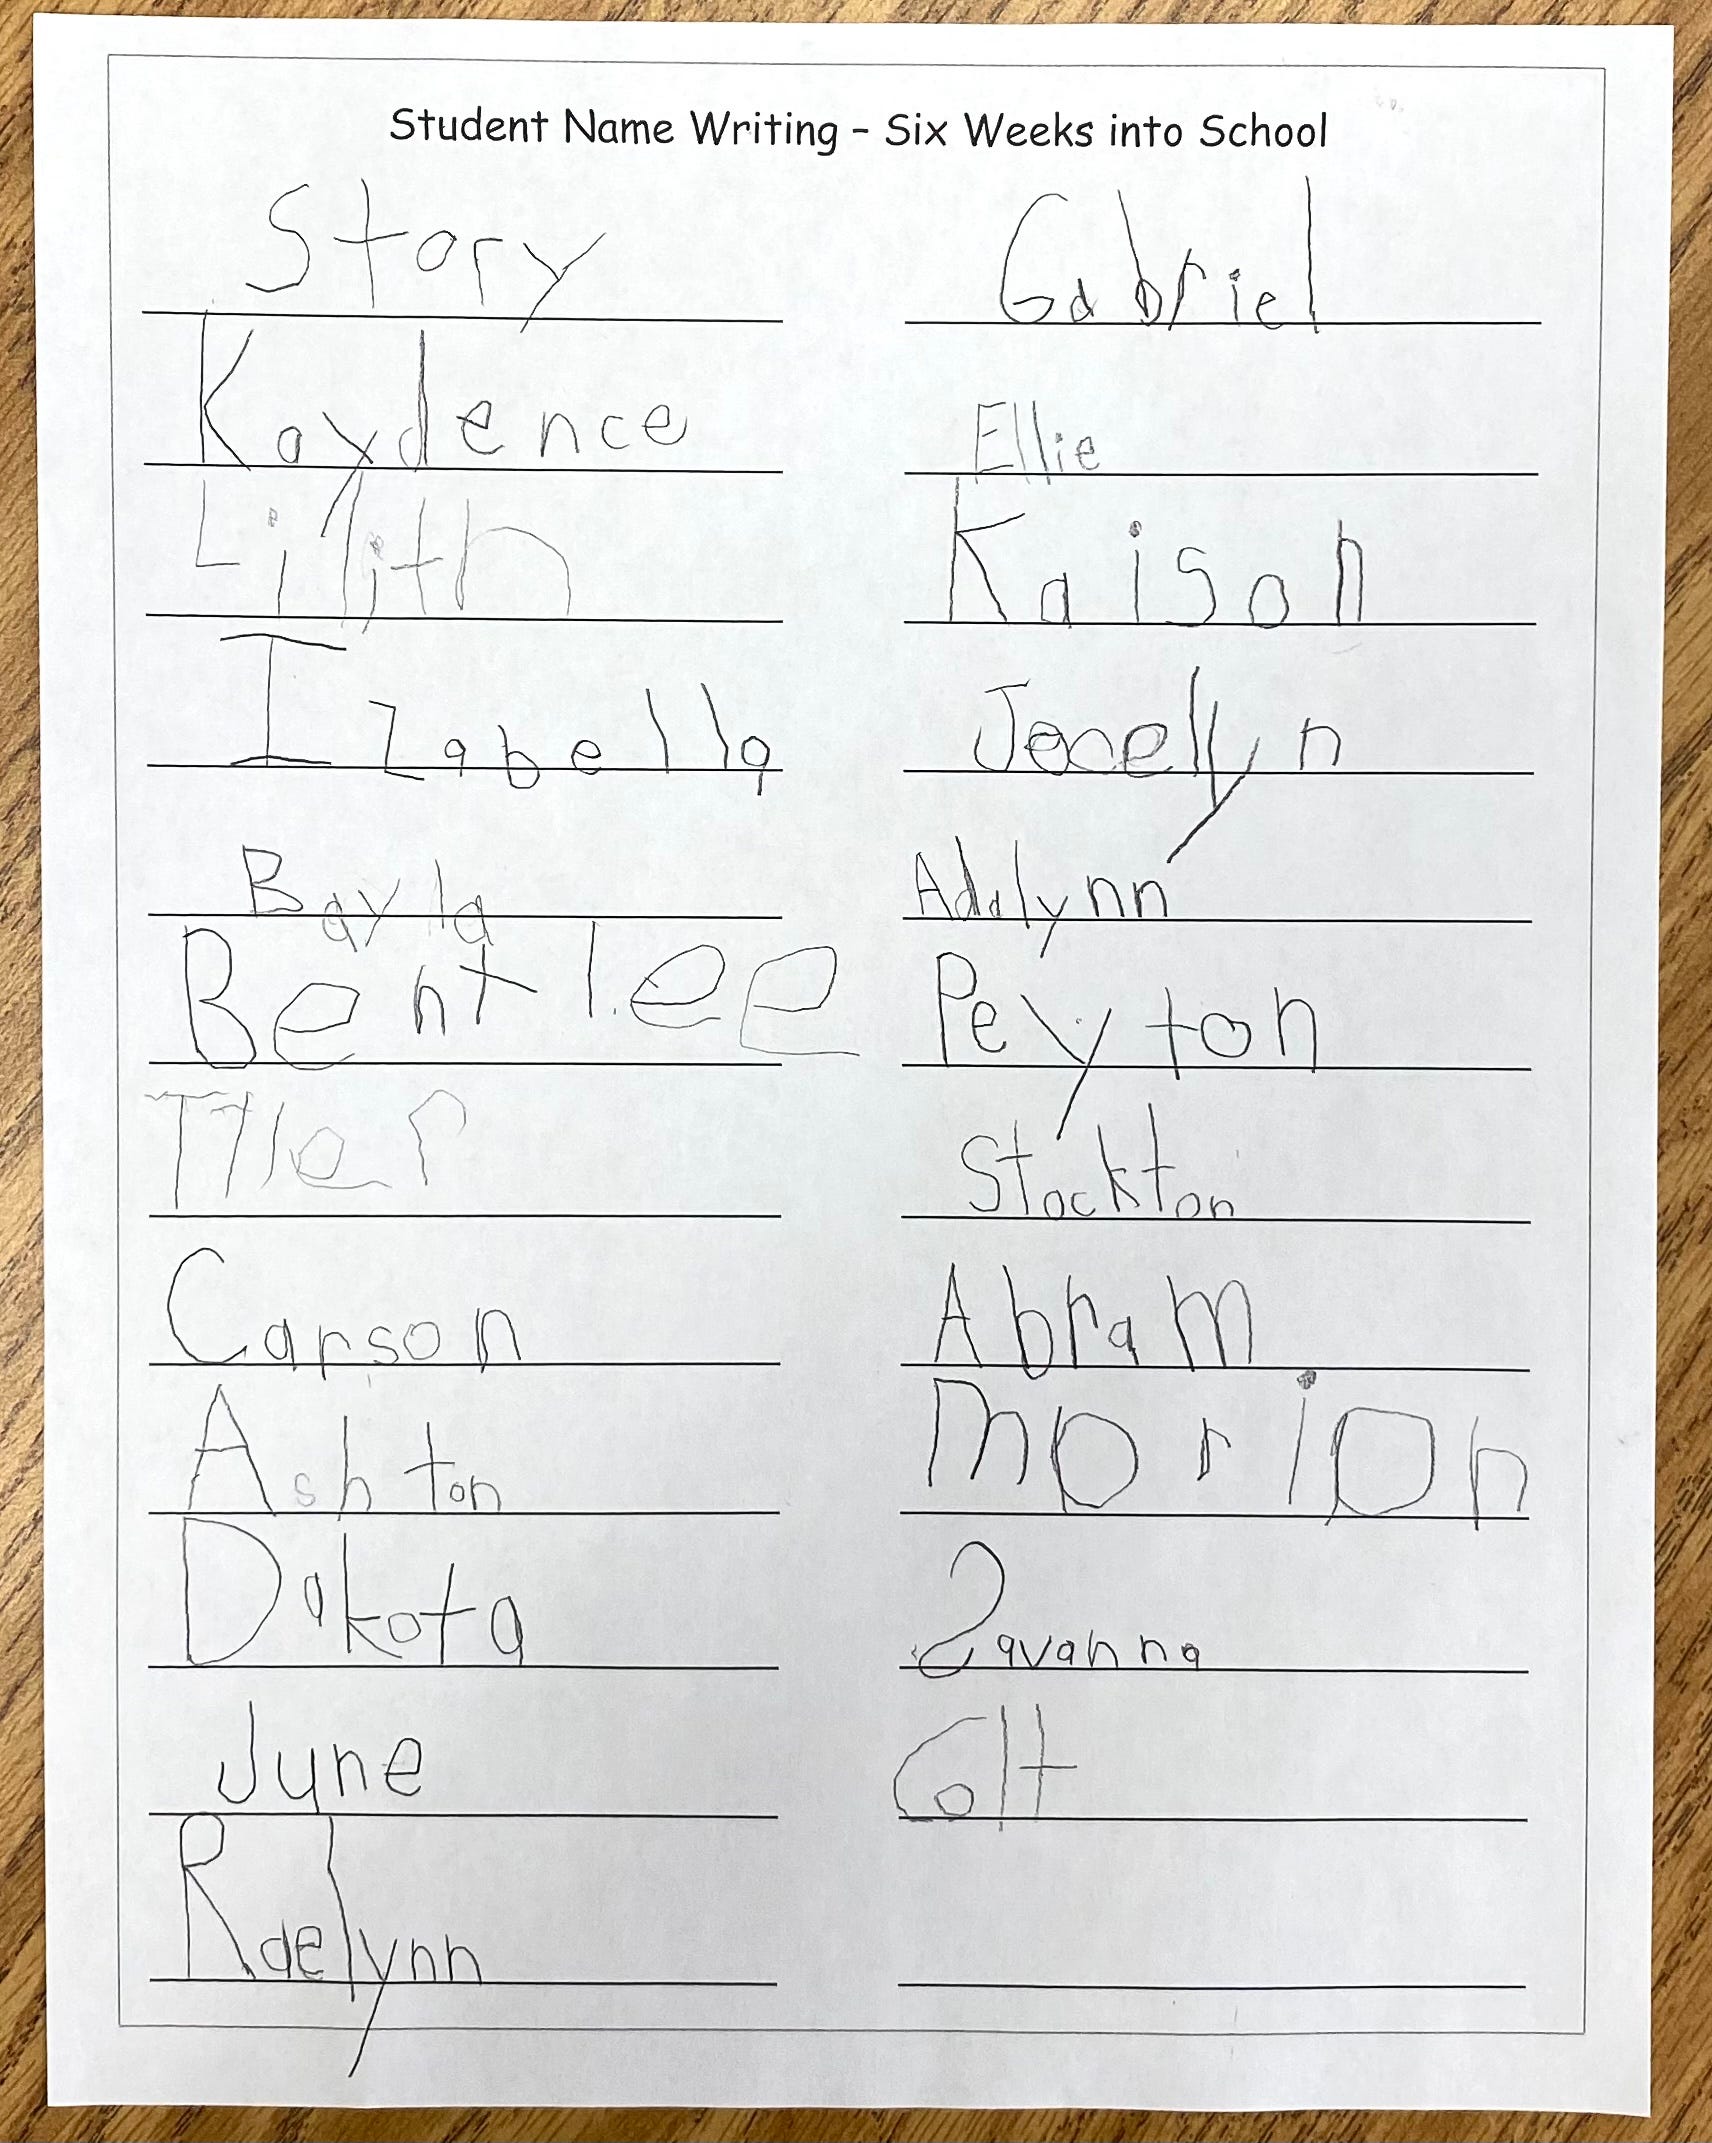 Student Name Writing - Six Weeks into School
Story
Kaydence
Lilith
Izabella
Bayla
Bentlee
Tyler
Carson
Ashton
Dakota
June
Raelynn
Gabriel
Ellie
Kaison
Jocelyn
Adalynn
Peyton
Stockton
Abram
Marion
Savanna
Colt